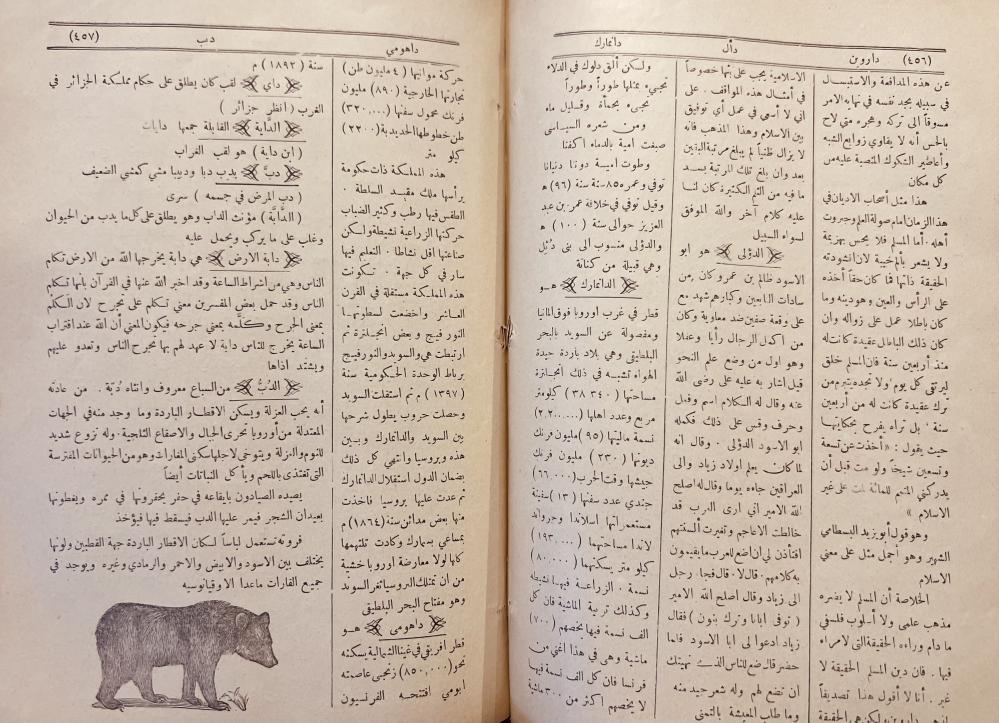 (٤٥٦)
داروين
دأل
دانمارك
عن هذه المدافعة والاستبسال
في سبيله يجد نفسه في نهايه الامر
مسوقاً الى تركه وهجره متى لاح
بالحس أنه لا يقاوي زوابع الشبه
وأعاصير الشكوك المنصبة عليه من
كل مكان
هذا مثل أصحاب الاديان في
هذا الزمان امام صولة العلم وجبروت
أهله . أما المسلم فلا يحس بهزيمة
ولا يشعر بألم خيبة لان انشودته
الحقيقة ذاتها فما كان حقاً أخذه
على الرأس والعين وهو دينه وما
كان باطلا عمل على زواله وان
كان ذلك الباطل عقيدة كانت له
منذ أربعين سنة فان المسلم خلق
ليرتقى كل يوم ولا تجده يتبرم من
ترك عقيدة كانت له من أربعين
سنة ، بل تراه يفرح بحكايتها
حيث يقول : «أخذت عن تسعة
وتسعين شيخاً ولو مت قبل أن
يدركني المتمم للمائة لمت على غير
الاسلام »
وهو قول أبو يزيد البسطامي
الشهير وهو أجمل مثل على معنى
الاسلام
الخلاصة أن المسلم لا يضره
مذهب علمى ولا أسلوب فلسفى
ما دام وراءه الحقيقة التى لا مراء
فيها . فان دين المسلم الحقيقة لا
غير . أنا لا أقول هذا تصديقاً
الاسلامية يجب على بثها خصوصاً
في أمثال هذه المواقف . على
اني لا أسعى في عمل أي توفيق
بين الاسلام وهذا المذهب فانه
لا يزال ظنياً لم يبلغ مرتبة اليقين
بعد وان بلغ تلك المرتبة يسد
ما فيه من الثلم الكثيرة كان لنا
عليه كلام آخر والله الموفق
لسواء السبيل
الدؤلى هو ابو
الاسود ظالم بن عمر وكان من
سادات التابعين وكبارهم شهد مع
على وقعة صفين ضد معاوية وكان
من اكمل الرجال رأيا وعقلا
وهو اول من وضع علم النحو
قيل اشار به عليه على رضى الله
عنه وقال له الكلام اسم وفعل
وحرف وقس على ذلك فكمله
ابو الاسود الدؤلى . وقال انه
لما كان يعلم اولاد زياد والى
العراقين جاءه يوما وقال له اصلح
الله الامير اني ارى العرب قد
خالطت الاعاجم وتغيرت ألسنتهم
افتأذن لي ان اضع للعرب ما يقيمون
به كلامهم . قال لا . قال فجاء رجل
الى زياد وقال اصلح الله الامير
( توفى ابانا وترك بنون ) فقال
زياد ادعوا لي ابا الاسود فلما
حضر قال ضع للناس الذى نهيتك
ان تضع لهم وله شعر جيد منه
وما طلب المعيشة بالتمنى
ولكن ألق دلوك في الدلاء
تجيء بمثلها طوراً وطوراً
تجىء بحمأة وقليل ماء
ومن شعره السياسى
صبغت امية بالدماء اكفنا
وطوت امية دوننا دنيانا
توفي وعمره ٨٥ سنة سنة (٩٦) ه
وقيل توفي في خلافة عمر بن عبد
العزيز حوالى سنة (١٠٠) ه
والدؤلى منسوب الى بنى دُئِل
وهى قبيلة من كنانة
الدانمارك هــو
قطر في غرب اوروبا فوق المانيا
ومفصولة عن السويد بالبحر
البلطيقي وهي بلاد باردة جيدة
الهواء تشبه في ذلك انجلترة
مساحتها (٣٨٣٤٠) كيلومتر
مربع وعدد اهلها (٢٢٠٠٠٠٠)
نسمة ماليتها (٩٥) مليون فرنك
ديونها (٢٣٠) مليون فرنك
جيشها وقت الحرب (٦٦٠٠٠)
جندى عدد سفنها (١٣) سفينة
مستعمراتها اسلاندا وجروانـد
لاندا مساحتهما (١٩٣٠٠٠)
كيلو متر يسكنهما (٨٠٠٠٠)
نسمة . الزراعة فيها نشيطة
وكذلك تربية الماشية فان كل
الف نسمة فيها يخصهم (٧٠٠)
ماشية وهى في هذا اغنى من
فرنسا فان كل الف نسمة فيها
لا يخصهم اكثر من ٣٠٠ ماشية
داهومي
دب
(٤٥٧)
حركة موانيها ( ٤ مليون طن)
تجارتها الخارجية (٨٩٠) مليون
فرنك محمول سفنها (٣٢٠٠٠٠)
طن خطوطها الحديدية (٢٢٠٠)
كيلو متر
هذه المملكة ذات حكومة
يرأسها ملك مقيد السلطة .
الطقس فيها رطب وكثير الضباب
حركتها الزراعية نشيطة ولكن
صناعتها اقل نشاطا . التعليم فيها
سار في كل جهة . تكونت
هذه المملكة مستقلة في القرن
العاشر واخضعت لسطوتها
النورفيج و بعض انجلترة ثم
ارتبطت هي والسويد والنورفيج
برباط الوحدة الحكومية سنة
(١٣٩٧) م ثم استقلت السويد
وحصلت حروب يطول شرحها
بين السويد والدانمارك وبين
هذه وبروسيا وانتهي كل ذلك
بضمان الدول استقلال الدانمارك
ثم عدت عليها بروسيا فاخذت
منها بعض مدائن سنة (١٨٦٤) م
بمساعي بسمارك وكادت تلتهمها
كلها لولا معارضة اوروبا خشية
من أن تمتلك البروسيا ثغر السوند
وهو مفتاح البحر البلطيقى
داهومى هــو
قطر أفريقي في غينا الشمالية يسكنه
نحو (٨٥٠٠٠٠) زنجى عاصمته
ابومى افتتحه الفرنسيون
سنة (١٨٩٢) م
داي لقب كان يطلق على حكام مملكة الجزائر في
الغرب ( انظر جزائر )
الدَّاية القابلة جمعها دايات
( ابن داية ) هو لقب الغراب
دبَّ يدِب دبا ودبيبا مشى كمشى الضعيف
( دب المرض في جسمه ) سرى
( الدَّابَّة ) مؤنث الداب وهو يطلق على كل ما يدب من الحيوان
وغلب على ما يركب ويحمل عليه
دابة الارض هى دابة يخرجها الله من الارض تكلم
الناس وهي من اشراط الساعة وقد اخبر الله عنها في القرآن بأنها تكلم
الناس وقد حمل بعض المفسرين معنى تكلم على تجرح لان الكلْم
بمعنى الجرح وكَلَمه بمعنى جرحه فيكون المعنى أن الله عند اقتراب
الساعة يخرج للناس دابة لا عهد لهم بها تجرح الناس وتعدو عليهم
ويشتد اذاها
الدُبُّ من السباع معروف وانثاه دُبّة . من عادته
أنه يحب العزلة ويسكن الاقطار الباردة وما وجد منه في الجهات
المعتدلة من أوروبا تحرى الجبال والاصقاع الثلجية . وله نزوع شديد
للنوم والعزلة ويتوخى لاجلها سكنى المغارات وهو من الحيوانات المفترسة
التى تغتذى باللحم ويأكل النباتات أيضاً
يصيده الصيادون بايقاعه في حفر يحفرونها في ممره ويغطونها
بعيدان الشجر فيمر عليها الدب فيسقط فيها فيؤخذ
فروته تستعمل لباساً لسكان الاقطار الباردة جهة القطبين ولونها
يختلف بين الاسود والابيض والاحمر والرمادي وغيره ويوجد في
جميع القارات ماعدا الاوقيانوسيه